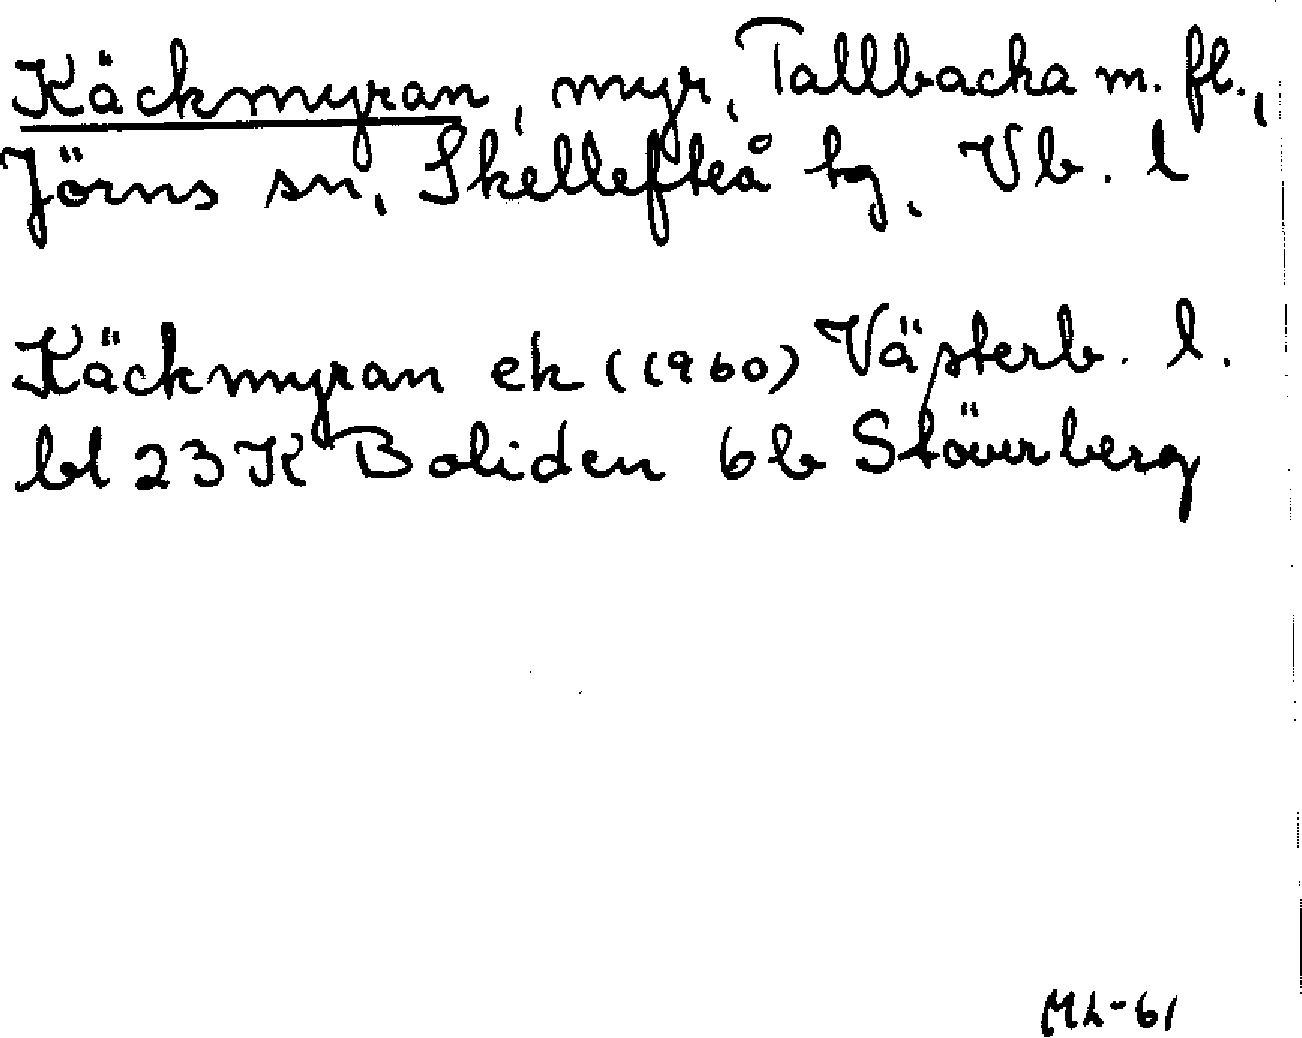 Käckmyran, myr, Tallbacka m. fl.,
Jörns sn, Skellefteå tg, Vb. l
Käckmyran ek (1960) Västerb. l.
bl 23K Boliden 6b Stöverberg
ML-61